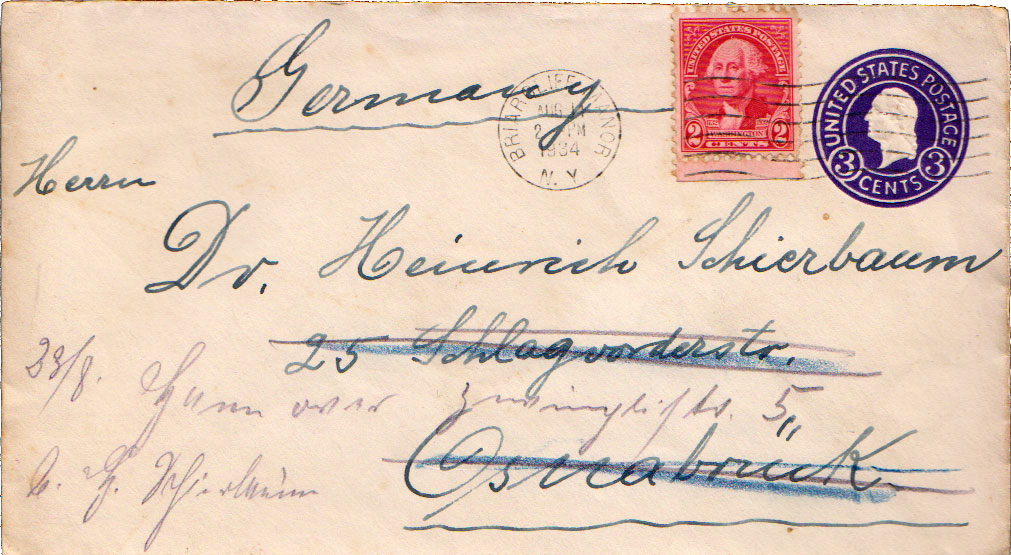 Germany
BRIARCLIFF MANOR
AUG
2 PM
1934
N. Y.
UNITED STATES POSTAGE
2 WASHINGTON 2
CENTS
UNITED STATES POSTAGE
3 CENTS 3
Herrn
Dr. Heinrich Schierbaum
25 Schlagvorderstr.
23/8. Hannover Zwinglistr. 5
b. Schierbaum
Osnabrück